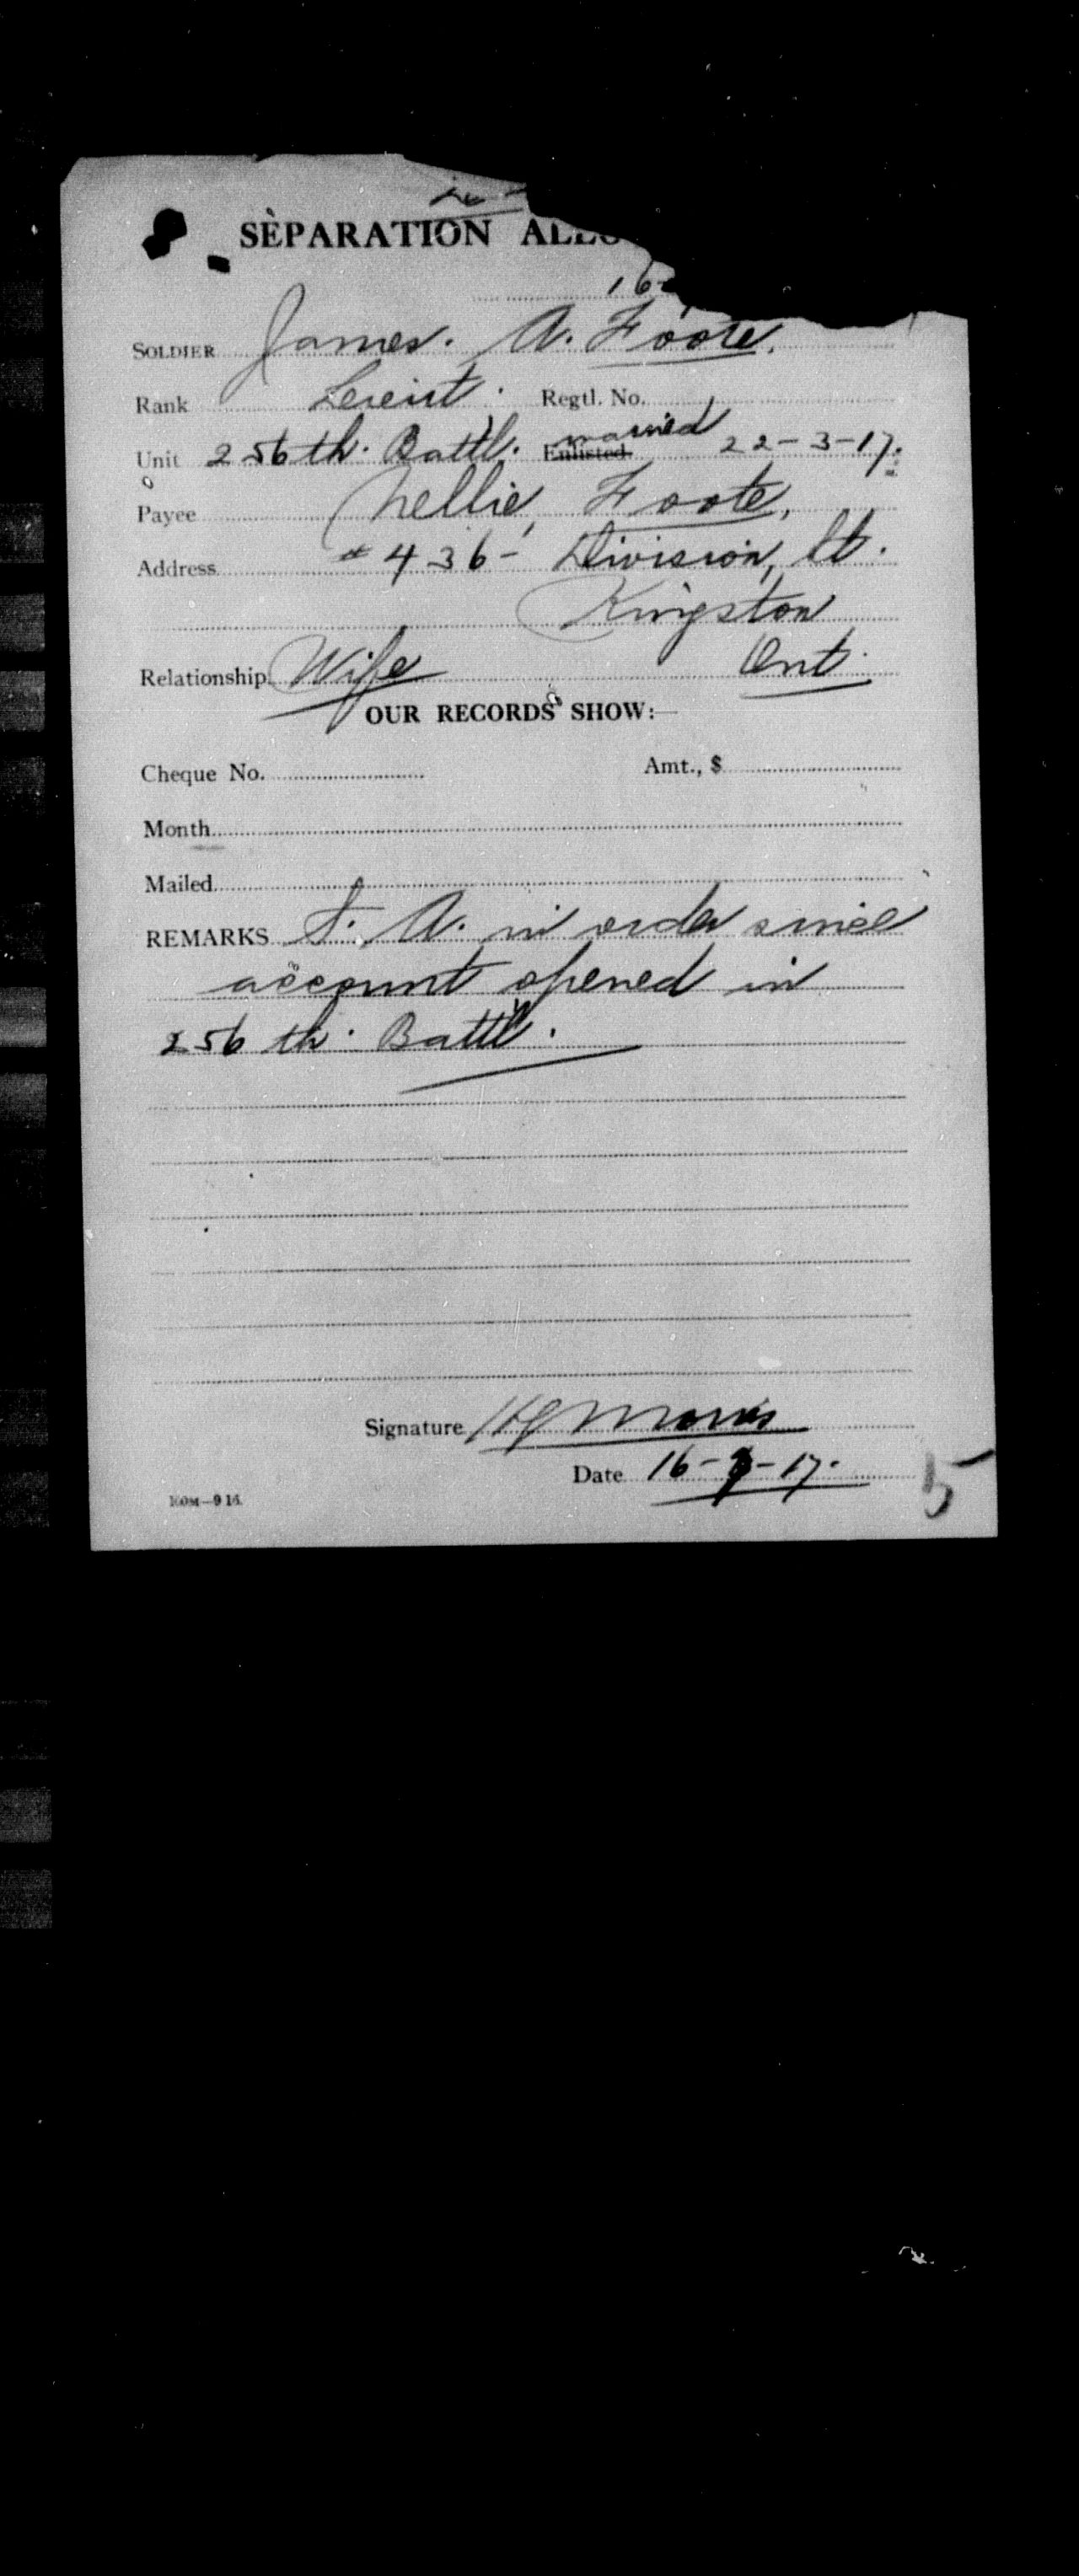 SEPARATION
16-
SOLDIER James. A. Foote.
Rank Lieut. Regtl. No.
married
Unit 256th. Battl. Enlisted 22-3-17.
Payee Nellie, Foote,
Address #436- Division, St.
Kingston
Relationship Wife Ont.
OUR RECORDS SHOW:
Cheque No. Amt., $
Month
Mailed
REMARKS S. A. in order since
account opened in
256 th. Battl.
Signature
Date 16- -17.
5